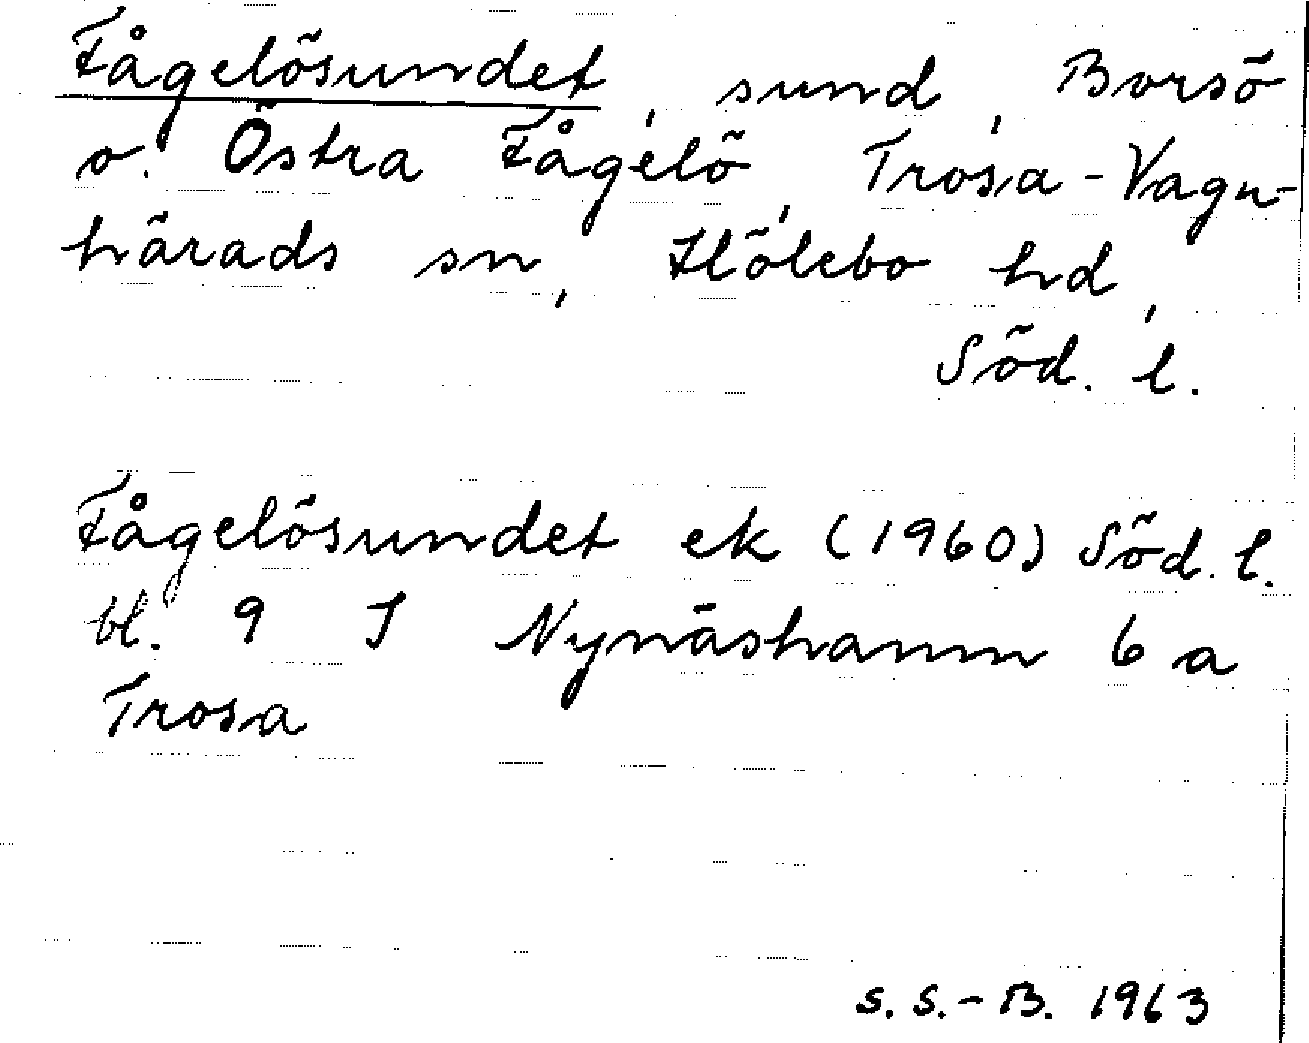 Fågelösundet, sund, Borsö
o. Östra Fågelö, Trosa-Vagn-
härads sn, Hölebo hd,
Söd. l.
Fågelösundet ek (1960) Söd. l.
bl. 9 I Nynäshamn 6 a
Trosa
S. S.-B. 1963